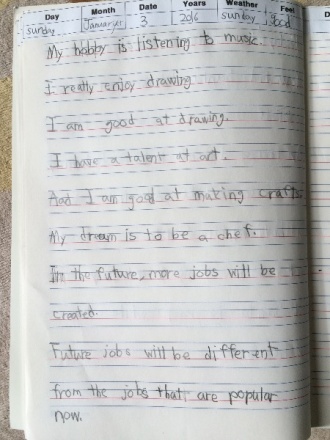 Day Month Date Years Weather Feel
Sunday January 3 2016 sunday good
My hobby is listening to music.
I really enjoy drawing
I am good at drawing.
I have a talent at art.
And I am good at making crafts
My dream is to be a chef.
In the future, more jobs will be
created.
Future jobs will be different
from the jobs that are popular
now.